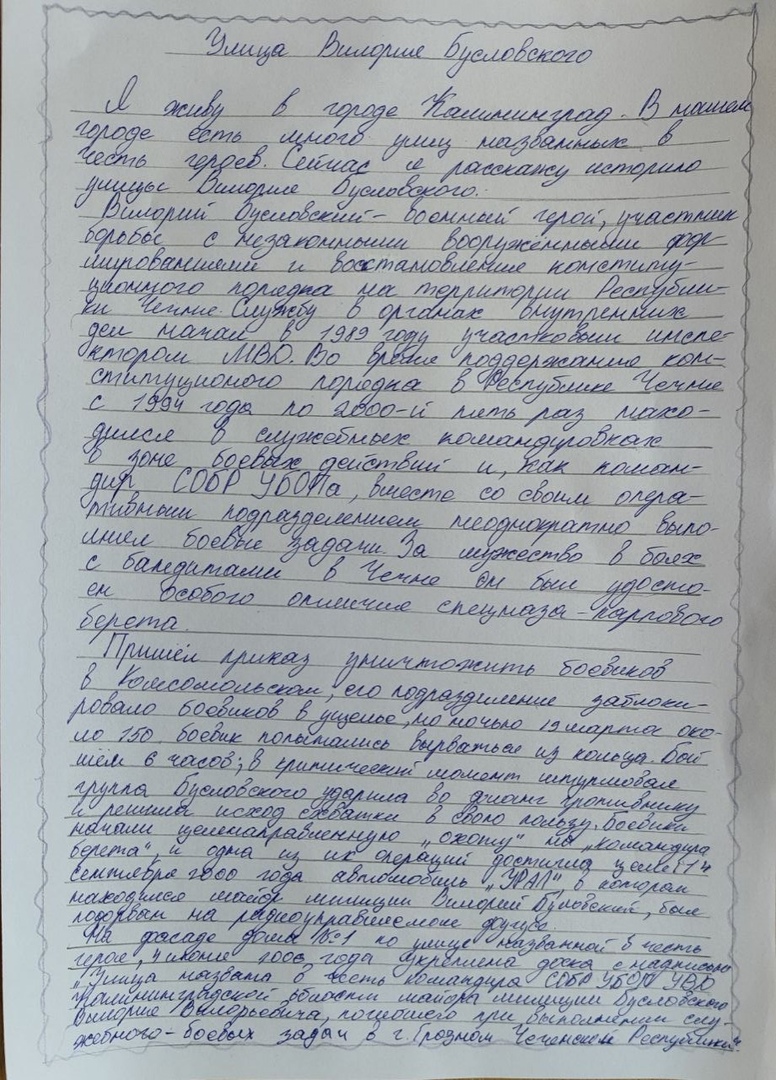 Улица Вилория Бусловского
Я живу в городе Калининград. В нашем
городе есть много улиц названных в
честь героев. Сейчас я расскажу историю
улицы Вилория Бусловского.
Вилорий Бусловский - военный герой, участник
борьбы с незаконными вооружёнными фор-
мированиями и восстановления конститу-
ционного порядка на территории Республи-
ки Чечня. Службу в органах внутренних
дел начал в 1989 году участковым инспе-
ктором МВД. Во время поддержания кон-
ституционого порядка в Республике Чечня
с 1994 года по 2000-й пять раз нахо-
дился в служебных командировках
в зоне боевых действий и, как коман-
дир СОБР УБОПа, вместе со своим опера-
тивным подразделением неоднократно выпо-
лнял боевые задачи. За мужество в боях
с бандитами в Чечне он был удосто-
ен особого отличия спецназа - краpового
берета.
Пришёл приказ уничтожить боевиков
в Комсомольском, его подразделение заблоки-
ровало боевиков в ущелье, но ночью 19 марта око-
ло 150 боевик попытались вырваться из кольца. Бой
шёл 6 часов; в критический момент штурмовая
группа Бусловского ударила во фланг противнику
и решила исход схватки в свою пользу. Боевики
начали целенаправленную „охоту" на „командира
берета", и одна из их операций достигла цели: 14
сентября 2000 года автомобиль „УРАЛ", в котором
находился майор милиции Вилорий Бусловский, был
подорван на радиоуправляемом фугасе.
На фасаде дома №1 по улице названной в честь
героя, 4 июня 2006 года укреплена доска с надписью
„Улица названа в честь командира СОБР УБОП УВД
Калининградской области майора милиции Бусловского
Вилория Вилорьевича, погибшего при выполнении слу-
жебного-боевых задач в г. Грозном Чеченской Республики".